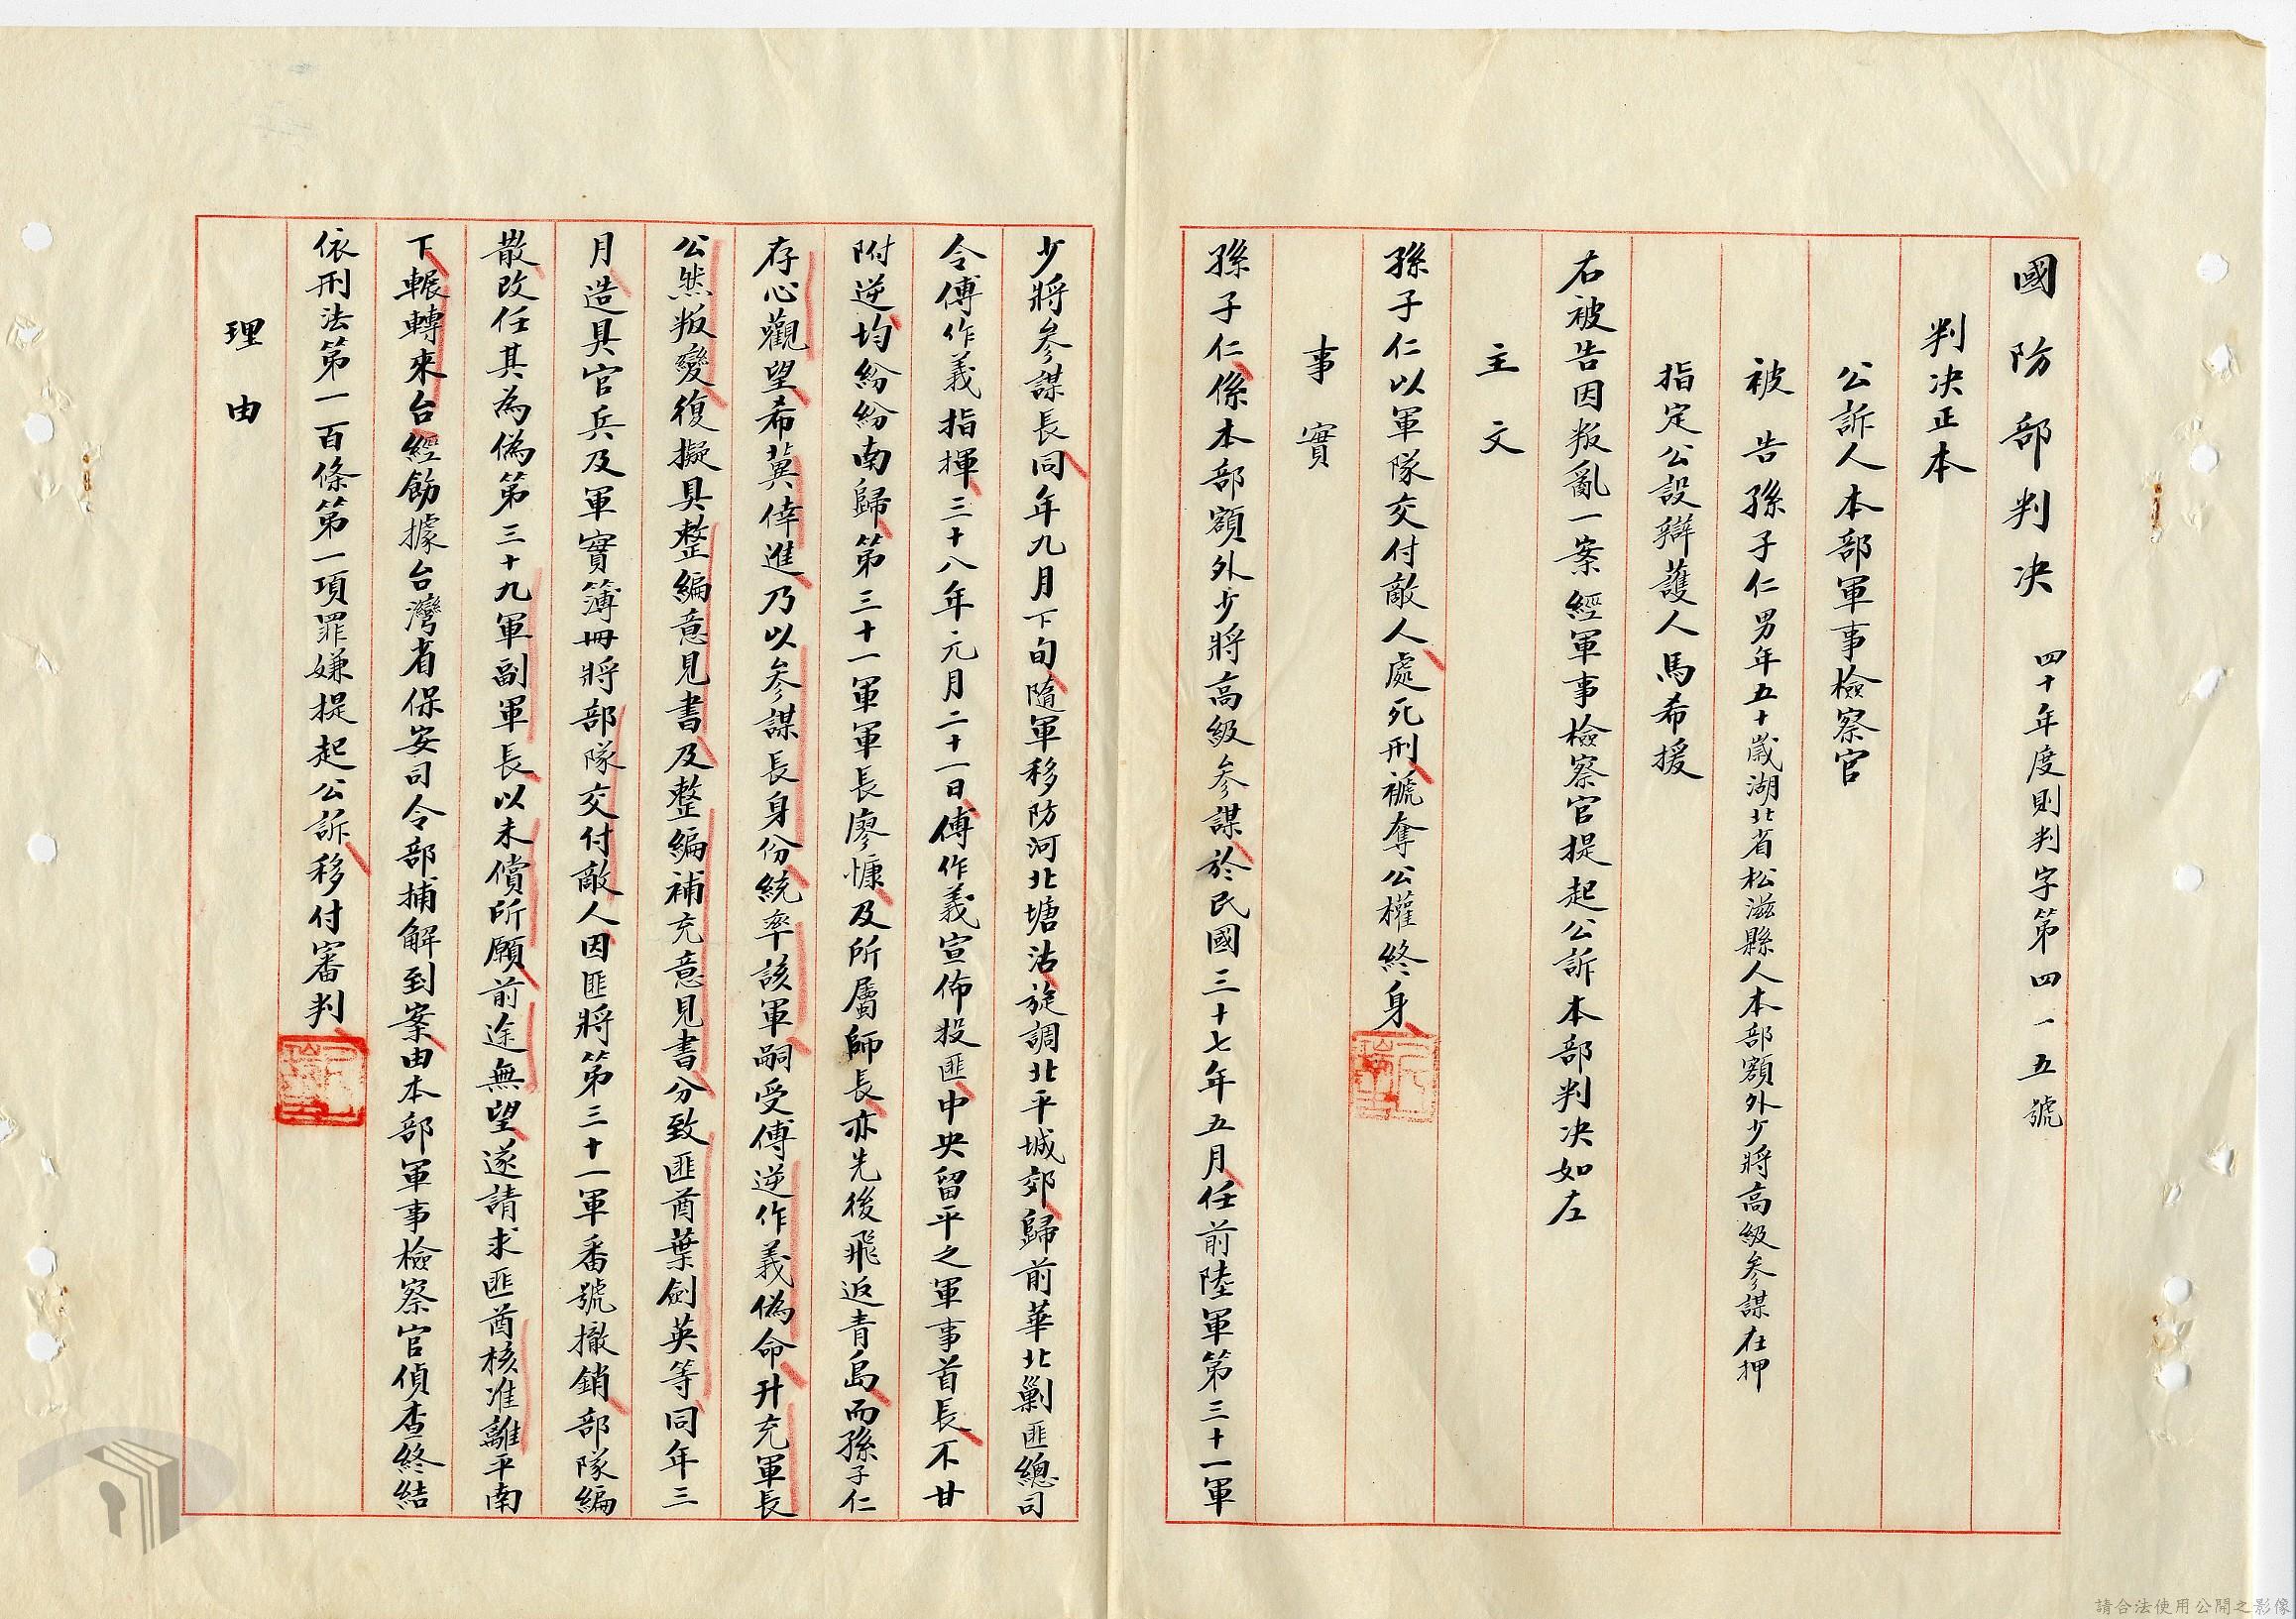 國防部判決 四十年度則判字第四一五號
判決正本
公訴人本部軍事檢察官
被告孫子仁男年五十歲湖北省松滋縣人本部額外少將高級參謀在押
指定公設辯護人馬希援
右被告因叛亂一案經軍事檢察官提起公訴本部判決如左
主文
孫子仁以軍隊交付敵人處死刑褫奪公權終身
事實
孫子仁係本部額外少將高級參謀於民國三十七年五月任前陸軍第三十一軍
少將參謀長同年九月下旬隨軍移防河北塘沽旋調北平城郊歸前華北剿匪總司
令傅作義指揮三十八年元月二十一日傅作義宣佈投匪中央留平之軍事首長不甘
附逆均紛紛南歸第三十一軍軍長廖慷及所屬師長亦先後飛返青島而孫子仁
存心觀望希冀倖進乃以參謀長身份統率該軍嗣受傅逆作義偽命升充軍長
公然叛變復擬具整編意見書及整編補充意見書分致匪酋葉劍英等同年三
月造具官兵及軍實簿冊將部隊交付敵人因匪將第三十一軍番號撤銷部隊編
散改任其為偽第三十九軍副軍長以未償所願前途無望遂請求匪酋核准離平南
下輾轉來台經飭據台灣省保安司令部捕解到案由本部軍事檢察官偵查終結
依刑法第一百條第一項罪嫌提起公訴移付審判
理由
請合法使用公開之影像